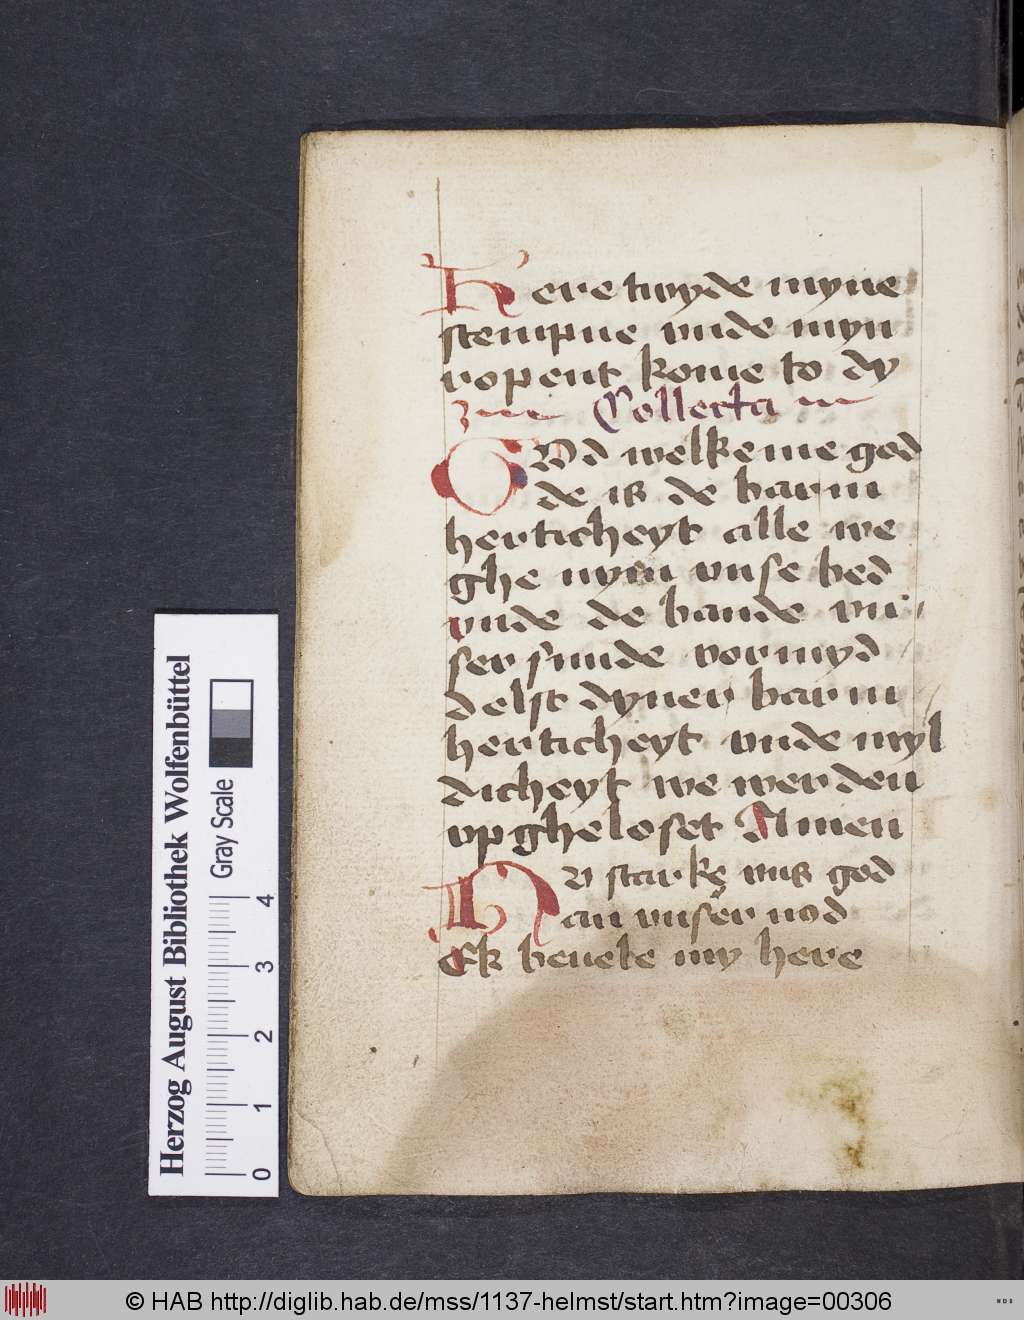 Here twyde myne
stempne vnde myn
ropent kome to dy
Collecta
God welkeme god
de is de barm
herticheyt alle we
ghe nym vnse bed
vnde de bande vn
ser sunde vormyd
delst dyner barm
herticheyt vnde myl
dicheyt we werden
vpgheloset Amen
Nv starke vns god
an vnser nod
Ek beuele my here
Herzog August Bibliothek Wolfenbüttel
Gray Scale
0 1 2 3 4
© HAB http://diglib.hab.de/mss/1137-helmst/start.htm?image=00306